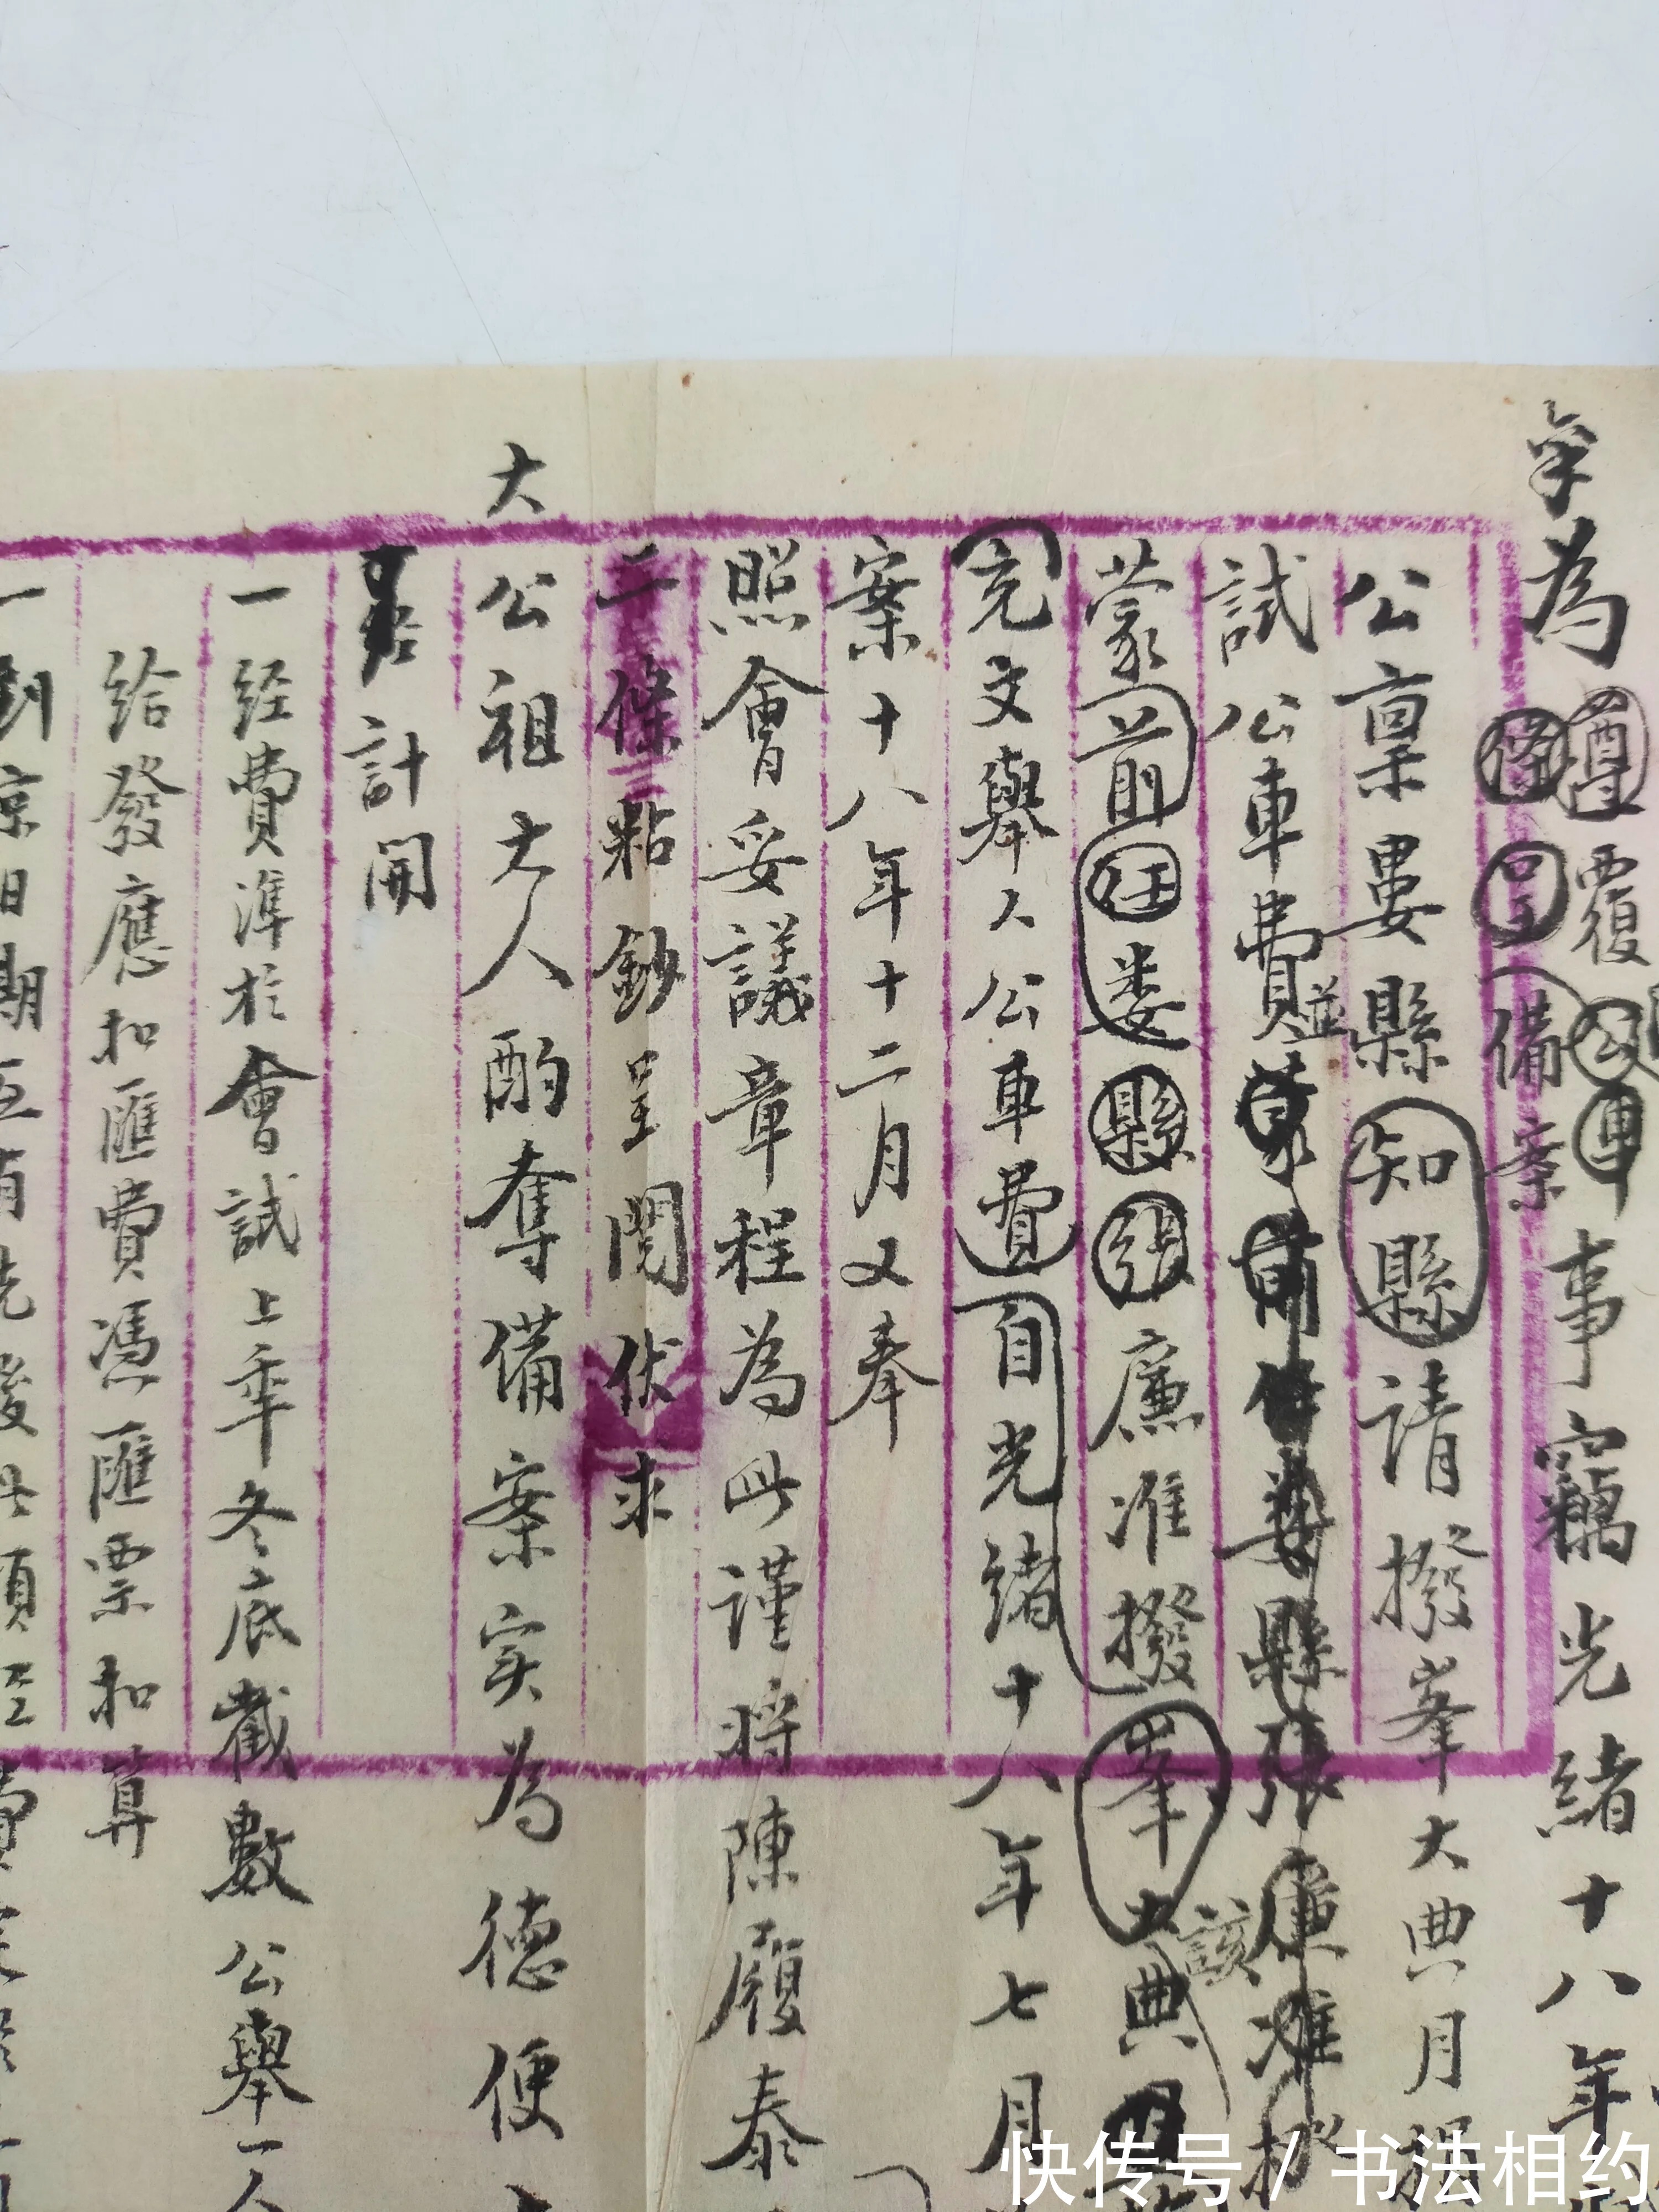 為遵覆公車事竊光緒十八年
條呈備案
公稟婁縣知縣請撥峯大典月捐
試公車費並蒙前任婁縣張廉准撥
蒙前任娄縣張廉准撥峯大典
該
充文舉人公車費自光緒十八年七月
案十八年十二月又奉
照會妥議章程為此謹將陳履泰
二條粘鈔呈閱伏求
大
公祖大人酌奪備案实為德便
計開
一经費準於會試上年冬底截數公舉一人
給發應扣匯費馮匯票扣算
一到京日期互有先後此項
快传号/书法相约